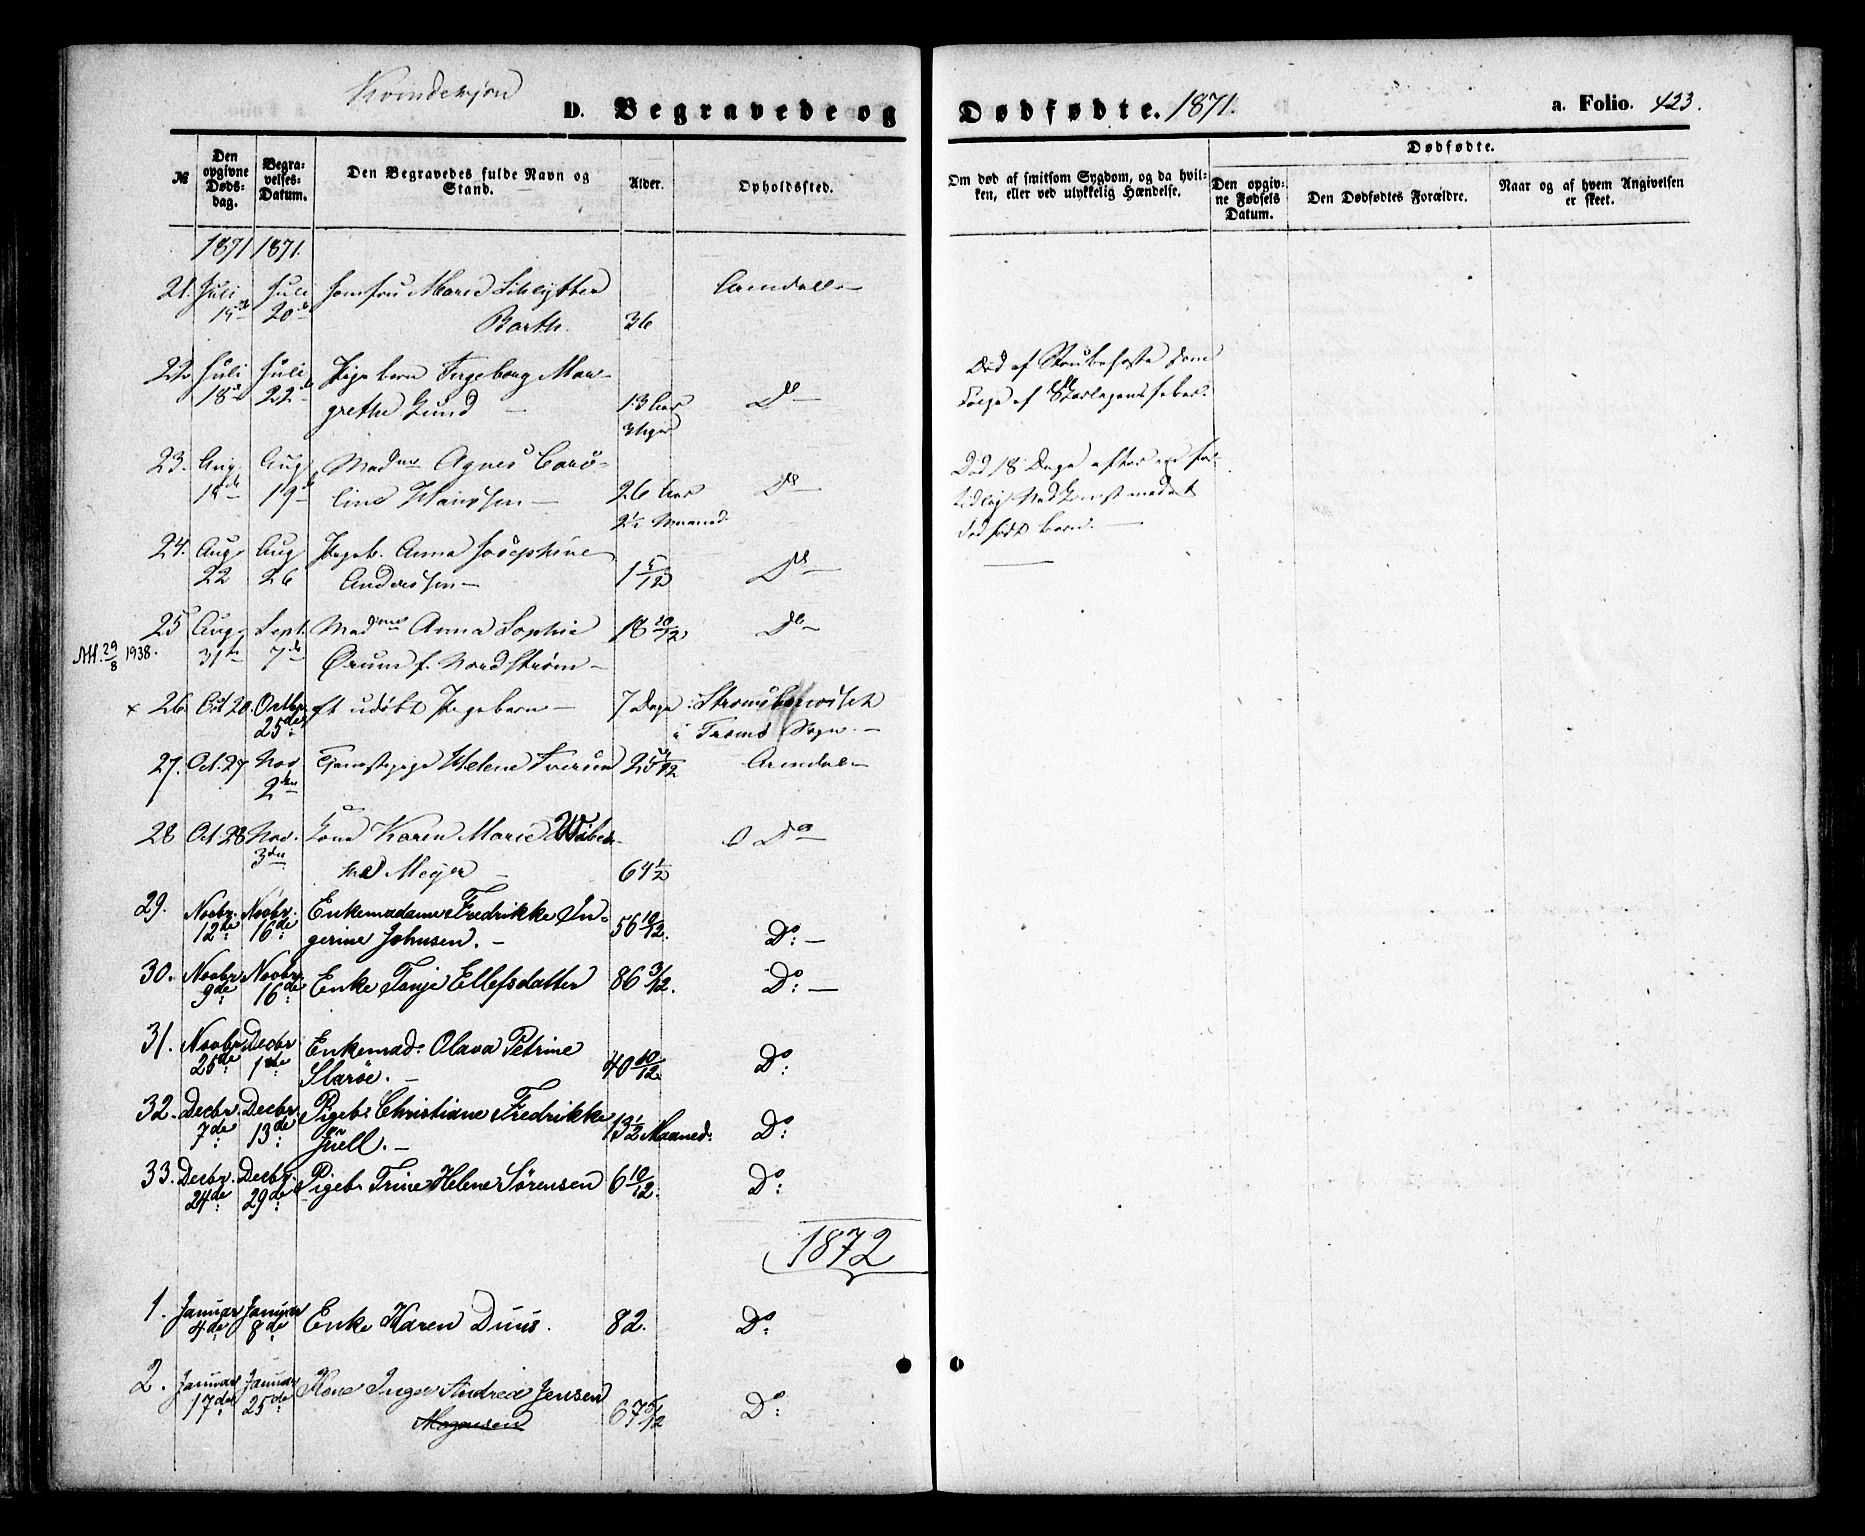 Kvindekjøn
D. Begravede og Dødfødte. 1871. a. Folio. 423.
№ Den opgivne Dødsdag. Begravelses-Datum. Den Begravedes fulde Navn og Stand. Alder. Opholdssted. Om død af smitsom Sygdom, og da hvilken, eller ved ulykkelig Hændelse. Dødfødte. Den opgivne Fødsels Datum. Den Dødfødtes Forældre. Naar og af hvem Angivelsen er skeet.
1871 1871.
21. Juli Juli Jomfru Marie Schlytter Arendal
20 Barth. 36
22. Juli Juli Pigebarn Ingeborg Mar- Død af Strubehoste som
18 22 grethe Lund 13 Aar Do Følge af Skarlagensfeber.
3 Uger
23. Aug Aug Madme Agnes Caro- Død 18 Dage efter
19 line Hanssen 26 Aar Do Nedkomst med et
2½ Maaned dødfødt Barn.
24. Aug Aug Pigeb. Anna Josephine
22 26 Anderssen 1 5/12 Do
25 Aug Sept. Madme Anna Sophie 18 10/12 Do
NH. 29/8 1938. 31te 7de Ørum f. Nordstrøm
× 26. Oct 20. Octbr et udøbt Pigebarn 7 Dage Strømsbo
25de: i Tromø Sogn.
27. Oct. 27 Nov Tjenestepige Helene Iversen 25 Arendal
2den
28 Oct 28 Nov. Kone Karen Marie Do
3den Meyer 64½
29. Novbr. Novbr. Enkemadame Fredrikke In-
12de: 16de: gerine Johnsen. 56 10/12. Do:
30. Novbr Novbr. Enke Tonje Ellefsdatter 86 3/12. Do:
9de: 16de:
31. Novbr Decbr Enkemad: Olava Petrine
25de: 1ste Slarøe. 40 10/12 Do:
32. Decbr. Decbr. Pigeb: Christiane Fredrikke
7de: 13de: Juell. 13½ Maaned: Do:
33. Decbr. Decbr. Pigeb: Trine Helene Sørensen 6 10/12. Do:
24de: 29de:
1872
1. Januar Januar Enke Karen Duus. 82. Do:
4de: 8de:
2. Januar Januar Kone Inger Andrea Jensen
17de: 25de: Mogensen 67 5/12 Do: